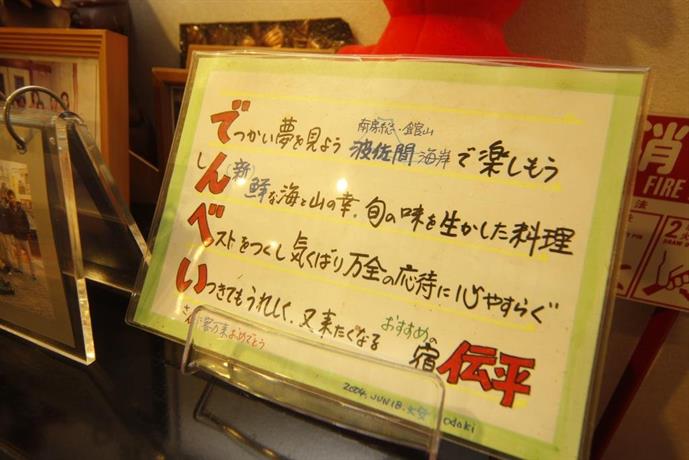 南房総・館山
でっかい夢を見よう 波佐間海岸で楽しもう
しん(新)鮮な海と山の幸、旬の味を生かした料理
ベストをつくし気くばり万全の応待に心やすらぐ
いつきてもうれしく、又来たくなる おすすめの宿 伝平
さん
おめでとう
2004. JUN 18.
odaki
消
FIRE
法
2